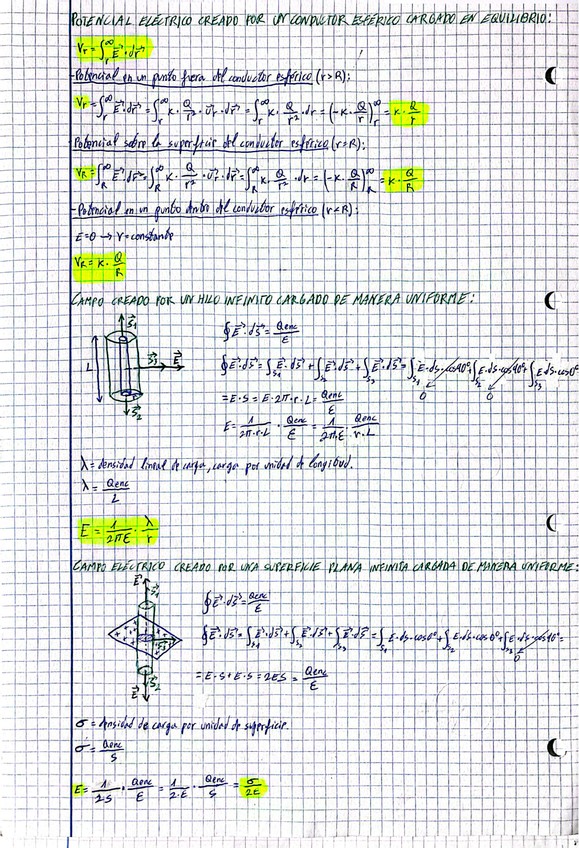 POTENCIAL ELÉCTRICO CREADO POR UN CONDUCTOR ESFÉRICO CARGADO EN EQUILIBRIO:
Vr = ∫_r^∞ E⃗ · dr⃗
-Potencial en un punto fuera del conductor esférico (r>R):
Vr = ∫_r^∞ E⃗ · dr⃗ = ∫_r^∞ K · Q/r² · u⃗r · dr⃗ = ∫_r^∞ K · Q/r² · dr = (-K · Q/r)_r^∞ = K · Q/r
-Potencial sobre la superficie del conductor esférico (r=R):
VR = ∫_R^∞ E⃗ · dr⃗ = ∫_R^∞ K · Q/r² · u⃗r · dr⃗ = ∫_R^∞ K · Q/r² · dr = (-K · Q/R)_R^∞ = K · Q/R
-Potencial en un punto dentro del conductor esférico (r<R):
E=0 → V=constante
VR = K · Q/R
CAMPO CREADO POR UN HILO INFINITO CARGADO DE MANERA UNIFORME:
S⃗1
L
S⃗3 E⃗
S⃗2
∮ E⃗ · dS⃗ = Qenc/ε
∮ E⃗ · dS⃗ = ∫_S1 E⃗ · dS⃗ + ∫_S2 E⃗ · dS⃗ + ∫_S3 E⃗ · dS⃗ = ∫_S1 E · ds · cos90° + ∫_S2 E · ds · cos90° + ∫_S3 E · ds · cos0°
0 0
= E · S = E · 2π · r · L = Qenc/ε
E = 1/2π·r·L · Qenc/ε = 1/2π·ε · Qenc/r·L
λ = densidad lineal de carga, carga por unidad de longitud.
λ = Qenc/L
E = 1/2πε · λ/r
CAMPO ELÉCTRICO CREADO POR UNA SUPERFICIE PLANA INFINITA CARGADA DE MANERA UNIFORME:
E⃗
S⃗2
E⃗
∮ E⃗ · dS⃗ = Qenc/ε
∮ E⃗ · dS⃗ = ∫_S1 E⃗ · dS⃗ + ∫_S2 E⃗ · dS⃗ + ∫_S3 E⃗ · dS⃗ = ∫_S1 E · ds · cos0° + ∫_S2 E · ds · cos0° + ∫_S3 E · ds · cos90° =
0
= E · S + E · S = 2ES = Qenc/ε
σ = densidad de carga por unidad de superficie.
σ = Qenc/S
E = 1/2·S · Qenc/ε = 1/2·ε · Qenc/S = σ/2ε